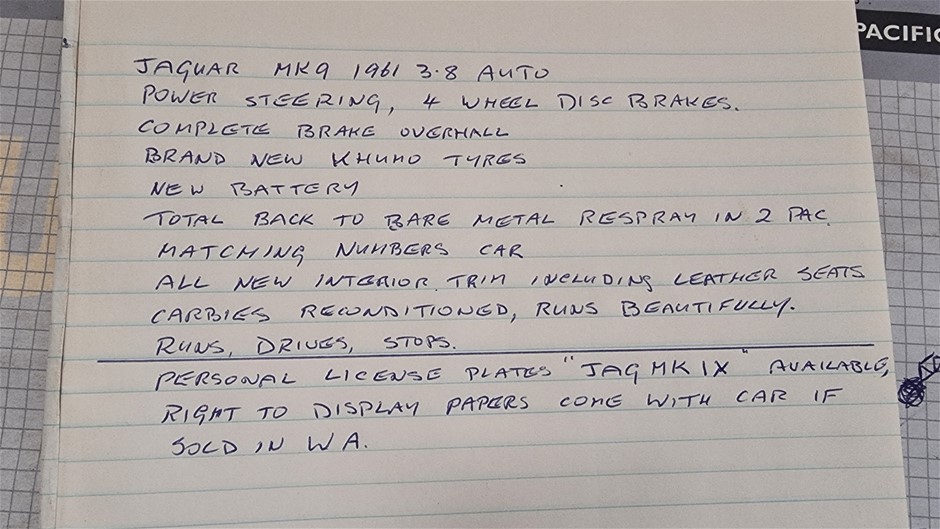 PACIFIC
JAGUAR MK9 1961 3.8 AUTO
POWER STEERING, 4 WHEEL DISC BRAKES.
COMPLETE BRAKE OVERHALL
BRAND NEW KHUMO TYRES
NEW BATTERY
TOTAL BACK TO BARE METAL RESPRAY IN 2 PAC.
MATCHING NUMBERS CAR
ALL NEW INTERIOR TRIM INCLUDING LEATHER SEATS
CARBIES RECONDITIONED, RUNS BEAUTIFULLY.
RUNS, DRIVES, STOPS.
PERSONAL LICENSE PLATES "JAG MK IX" AVAILABLE,
RIGHT TO DISPLAY PAPERS COME WITH CAR IF
SOLD IN WA.